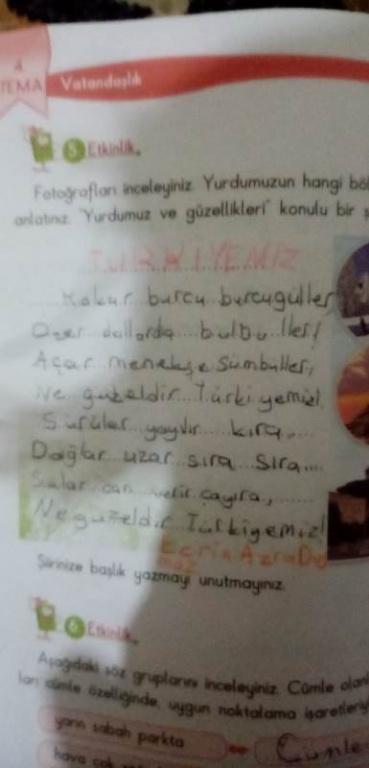 4
TEMA
Vatandaşlık
5 Etkinlik
Fotoğrafları inceleyiniz. Yurdumuzun hangi
anlatınız. "Yurdumuz ve güzellikleri" konulu bir
TÜRKİYEMİZ
Kokar burcu burcugüller
Öter dallarda bülbüller!
Açar menekşe sümbüller,
Ne güzeldir Türkiyemiz!
Sürüler yayılır kıra,
Dağlar uzar sıra sıra
Sular can verir çayıra,
Ne güzeldir Türkiyemiz!
Ecrin Azra
Şiirinize başlık yazmayı unutmayınız.
6 Etkinlik
Aşağıdaki söz gruplarını inceleyiniz. Cümle
cümle özelliğinde, uygun noktalama
yarın sabah parkta
Cümle
hava çok